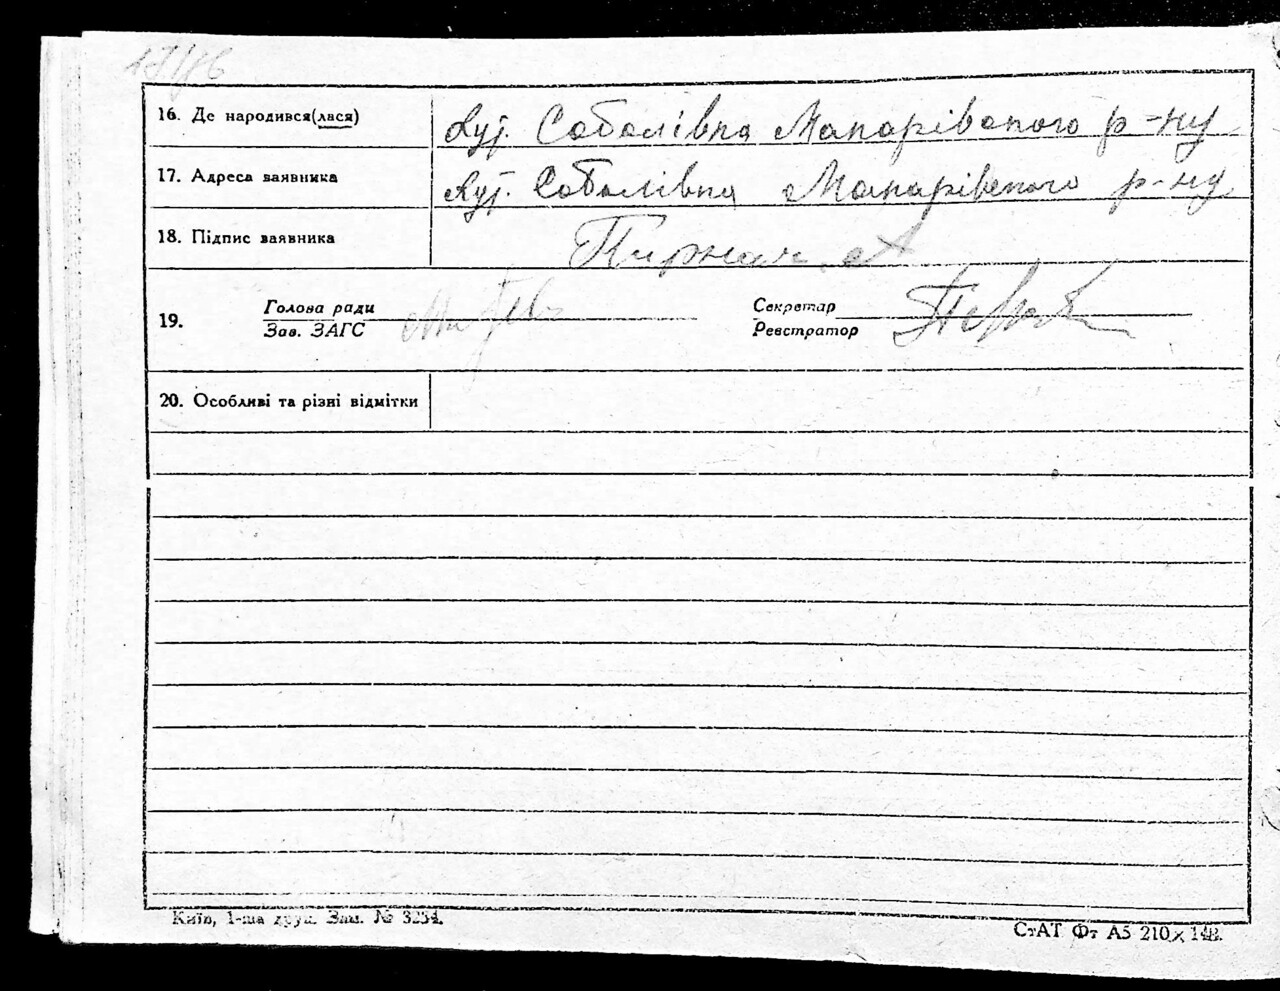 16. Де народився(лася) Хут. Соболівка Макарівського р-ну
17. Адреса заявника Хут. Соболівка Макарівського р-ну
18. Підпис заявника
19.
Голова ради
Зав. ЗАГС
Секретар
Реєстратор
20. Особливі та різні відмітки
Київ, 1-ша друк. Зам. № 3234.
СтАТ Фт А5 210 х 148.